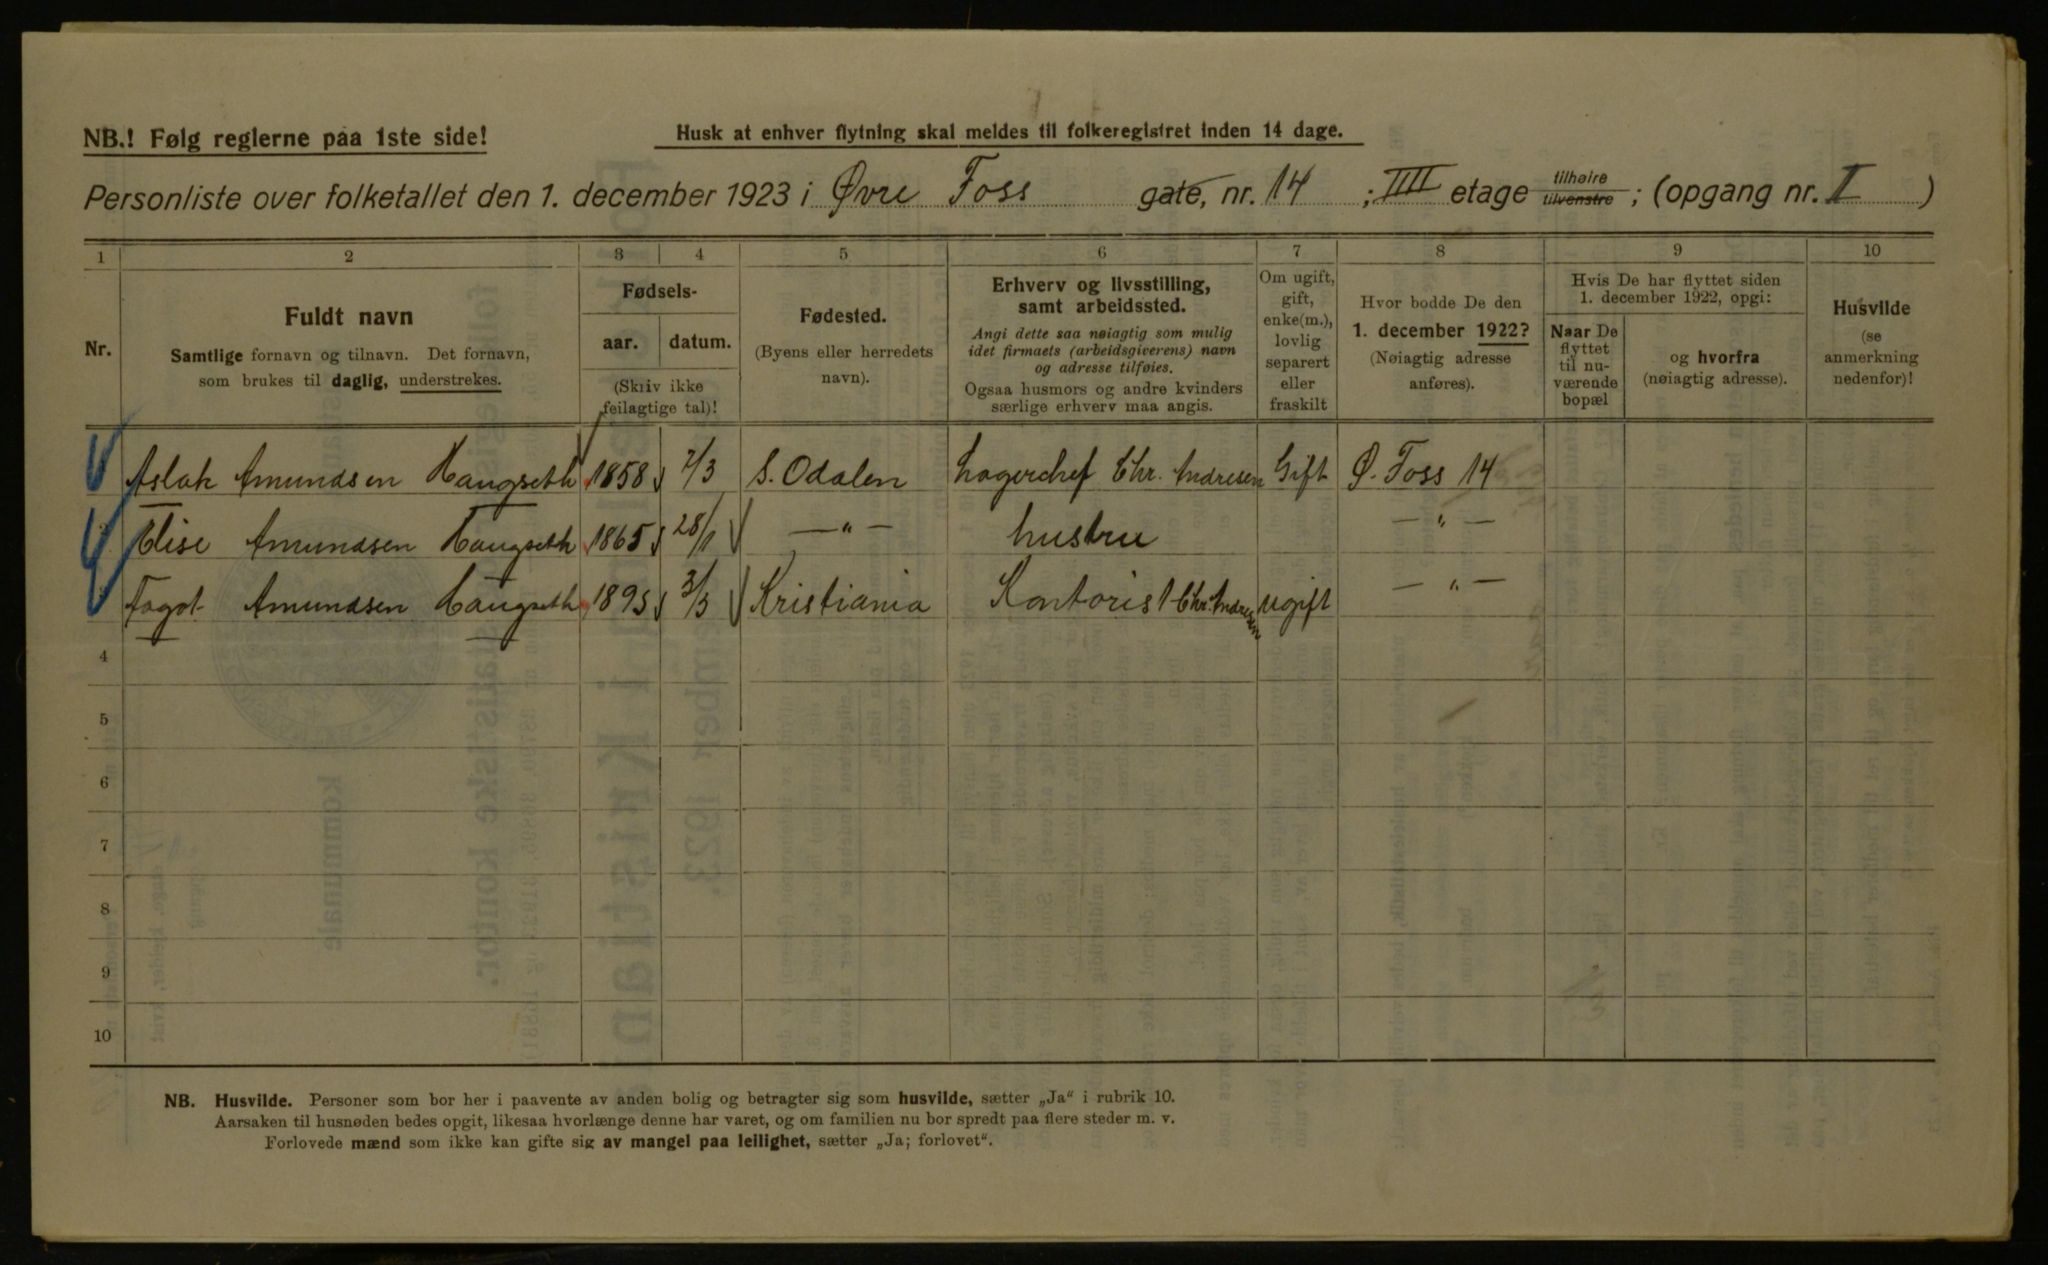 NB.! Følg reglerne paa 1ste side!
Husk at enhver flytning skal meldes til folkeregistret inden 14 dage.
Personliste over folketallet den 1. december 1923 i Øvre Foss gate, nr. 14 ; IIII etage tilhøire tilvenstre ; (opgang nr. I )
1 2 3 4 5 6 7 8 9 10
Nr.
Fuldt navn
Samtlige fornavn og tilnavn. Det fornavn,
som brukes til daglig, understrekes.
Fødsels-
aar. datum.
(Skriv ikke
feilagtige tal)!
Fødested.
(Byens eller herredets
navn).
Erhverv og livsstilling,
samt arbeidssted.
Angi dette saa nøiagtig som mulig
idet firmaets (arbeidsgiverens) navn
og adresse tilføies.
Ogsaa husmors og andre kvinders
særlige erhverv maa angis.
Om ugift,
gift,
enke(m.),
lovlig
separert
eller
fraskilt
Hvor bodde De den
1. december 1922?
(Nøiagtig adresse
anføres).
Hvis De har flyttet siden
1. december 1922, opgi:
Naar De
flyttet
til nu-
værende
bopæl
og hvorfra
(nøiagtig adresse).
Husvilde
(se
anmerkning
nedenfor)!
Aslak Amundsen Haugseth 1858 7/3 S. Odalen Lagerchef Chr. Andresen Gift Ø. Foss 14
Elise Amundsen Haugseth 1865 28/1 — " — hustru — " —
Amundsen Haugseth 1895 Kristiania Kontorist Chr. Andresen ugift — " —
4
5
6
7
8
9
10
NB. Husvilde. Personer som bor her i paavente av anden bolig og betragter sig som husvilde, sætter „Ja“ i rubrik 10.
Aarsaken til husnøden bedes opgit, likesaa hvorlænge denne har varet, og om familien nu bor spredt paa flere steder m. v.
Forlovede mænd som ikke kan gifte sig av mangel paa leilighet, sætter „Ja; forlovet“.